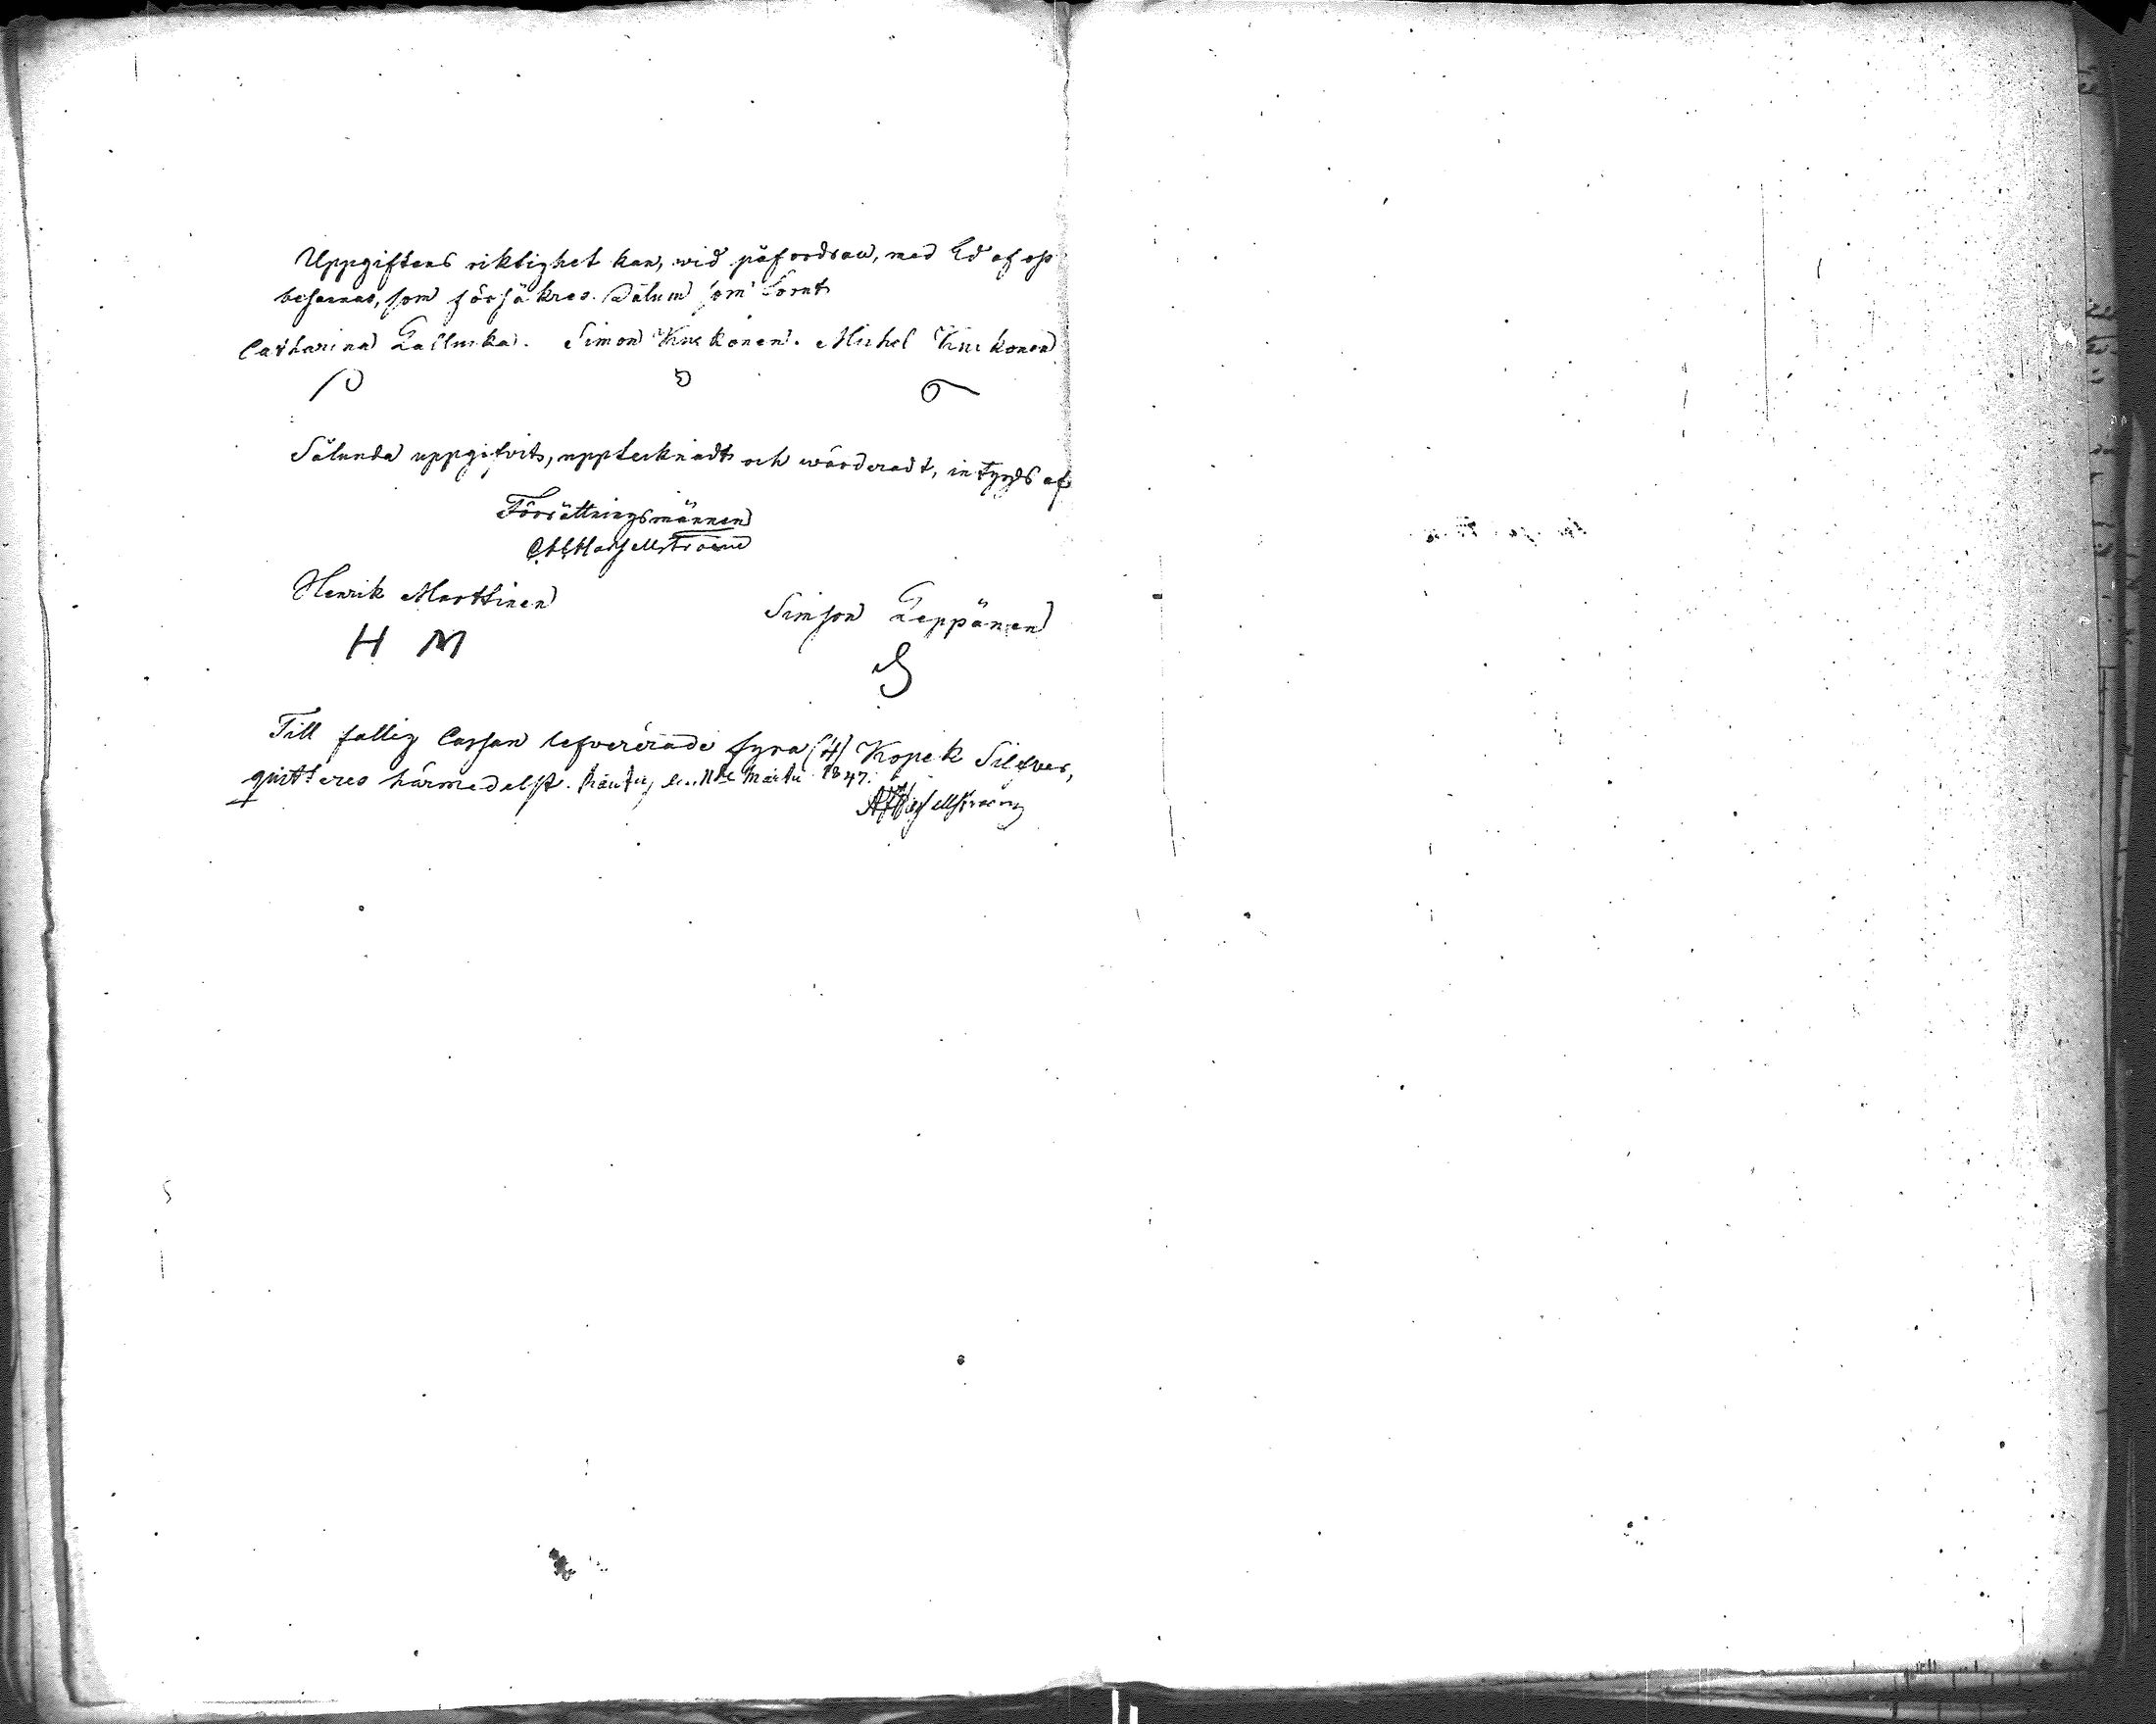 Uppgiftens riktighet kan, wid påfordran, med Ed af oss
besannas, som försäkras. Datum som förut
Catharina Lalluka. Simon Kuckonen. Michel Kuckonen
Sålunda uppgifvits, upptecknadt och wärderadt, intygas af
Förrättningsmännen
Henrik Marttinen
Simson Leppänen
H M
Till fattig Cassan lefvererade fyra (4) Kopek Silfver,
qvitteras härmedelst. den 11te Martii 1847.